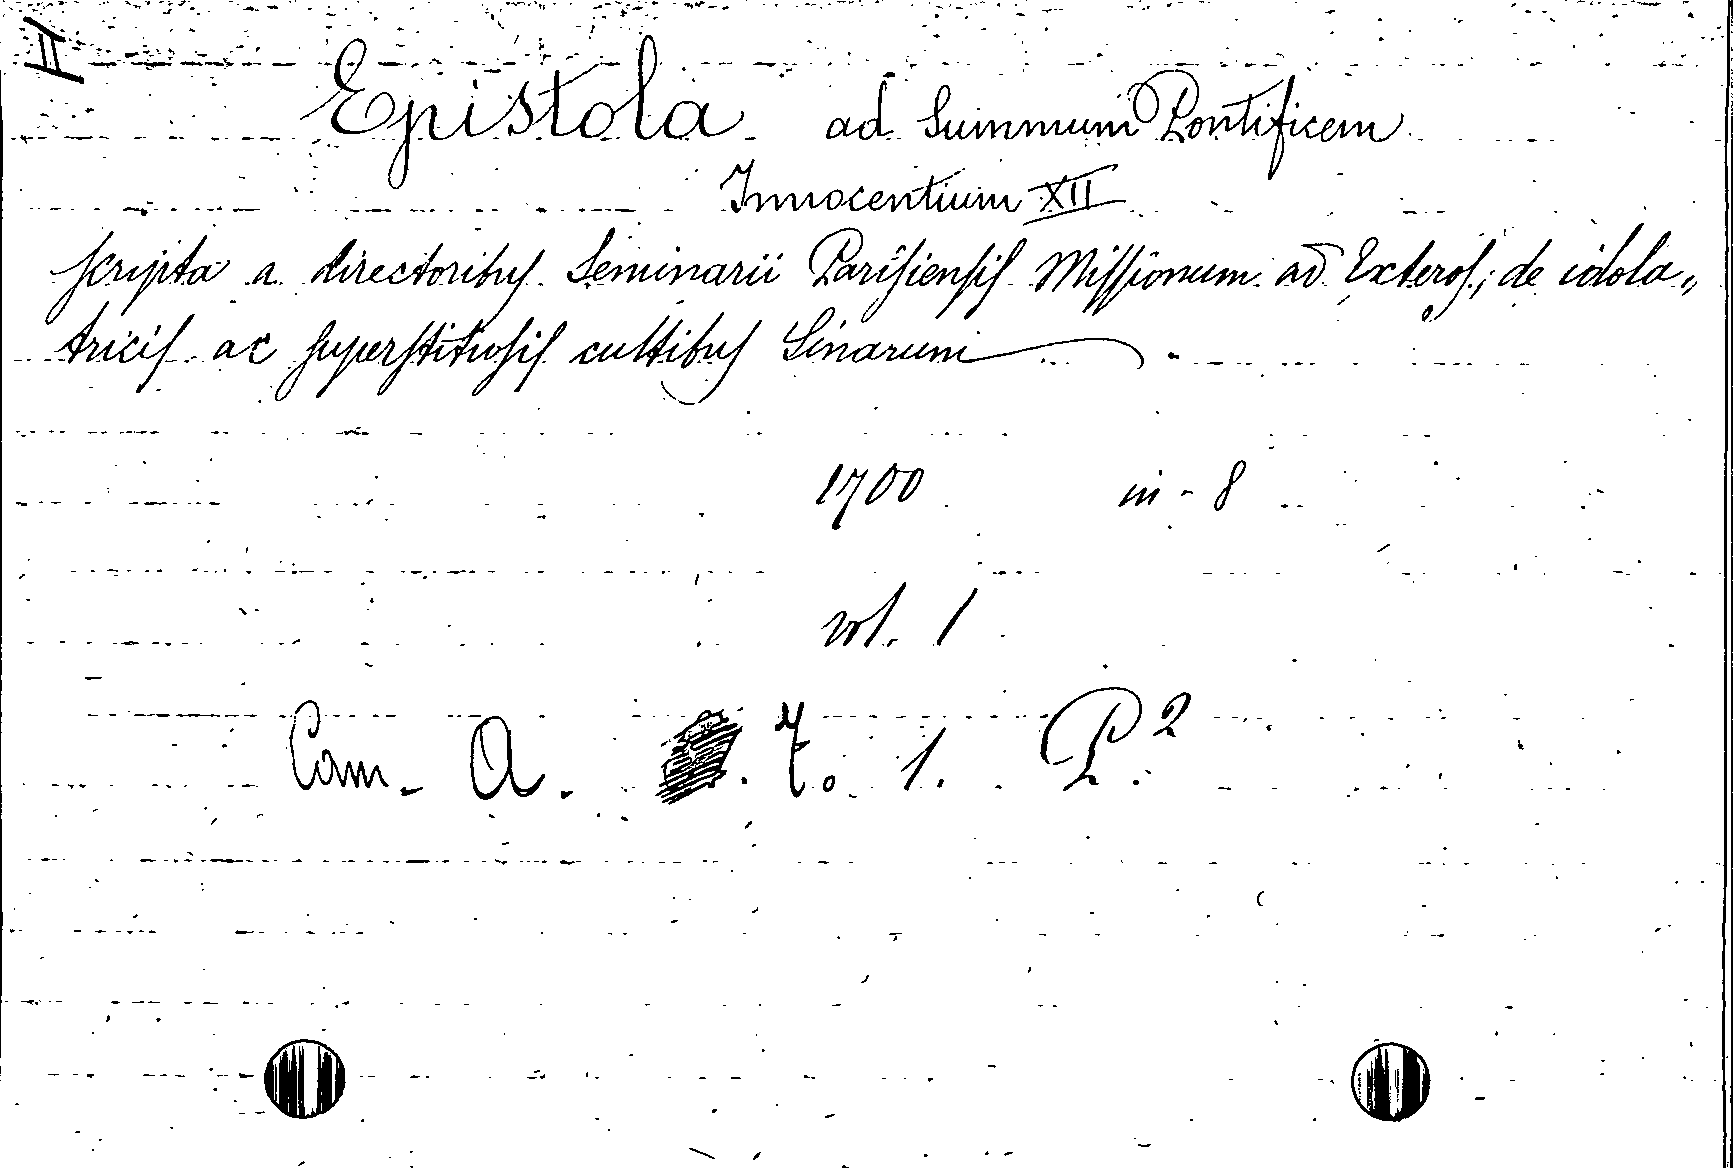 II
Epistola ad Summum Pontificem
Innocentium XII
scripta a directoribus Seminarii Parisiensis Missionum ad Exteros; de idola„
tricis ac superstitiosis cultibus Sinarum
1700 in-8
vol. 1
Cam. A. 7. 1. P.2